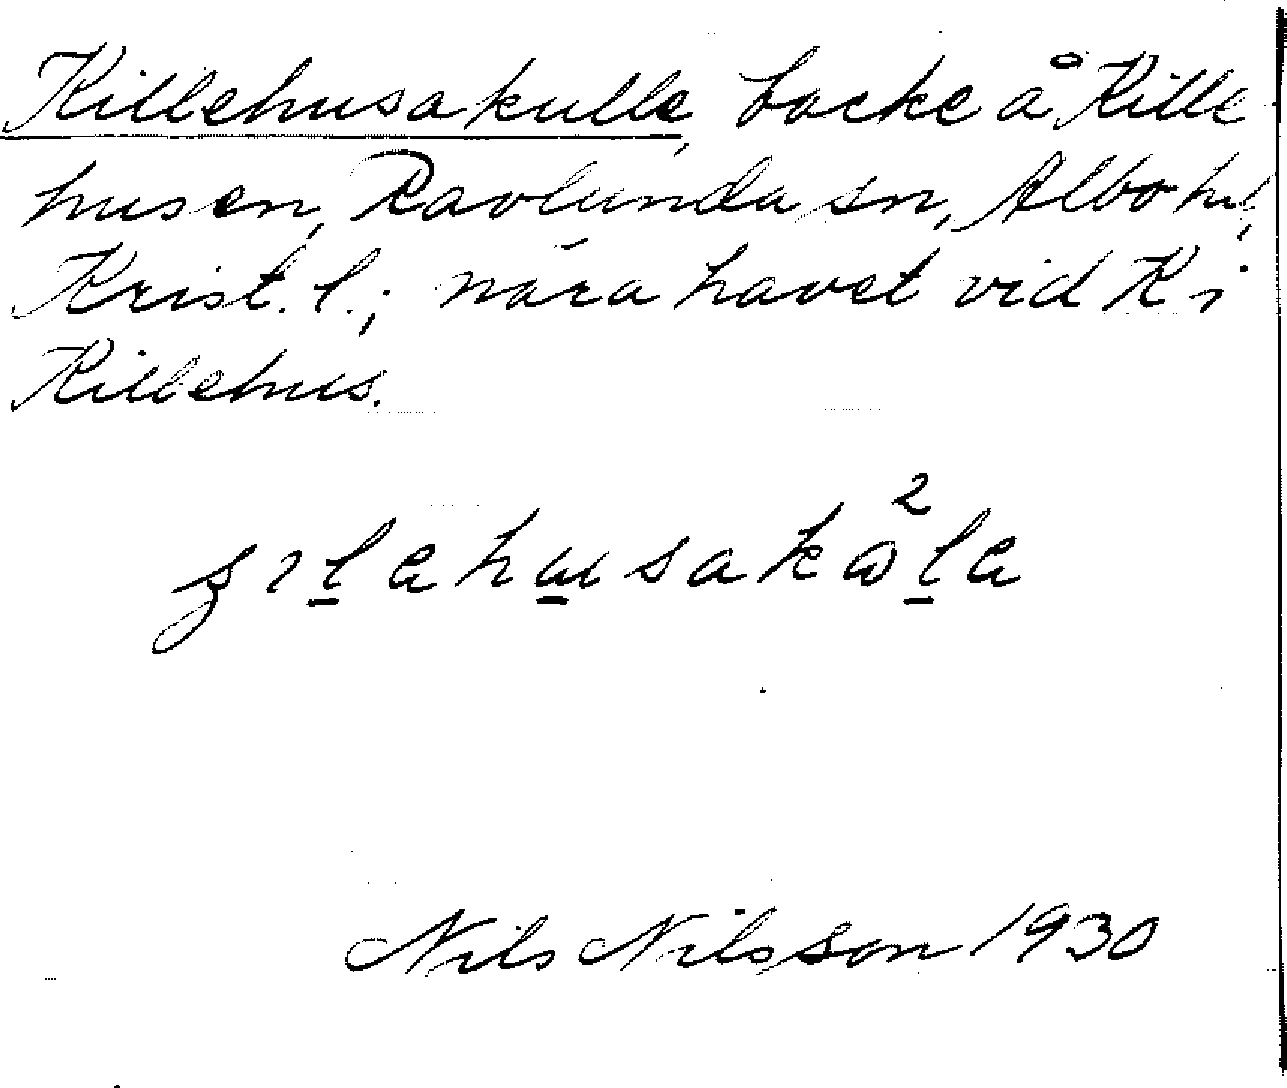 Killehusakulle, backe å Kille
husen, Ravlunda sn, Albo hd,
Krist. l.; nära havet vid K i
Killehus.
2
Nils Nilsson 1930